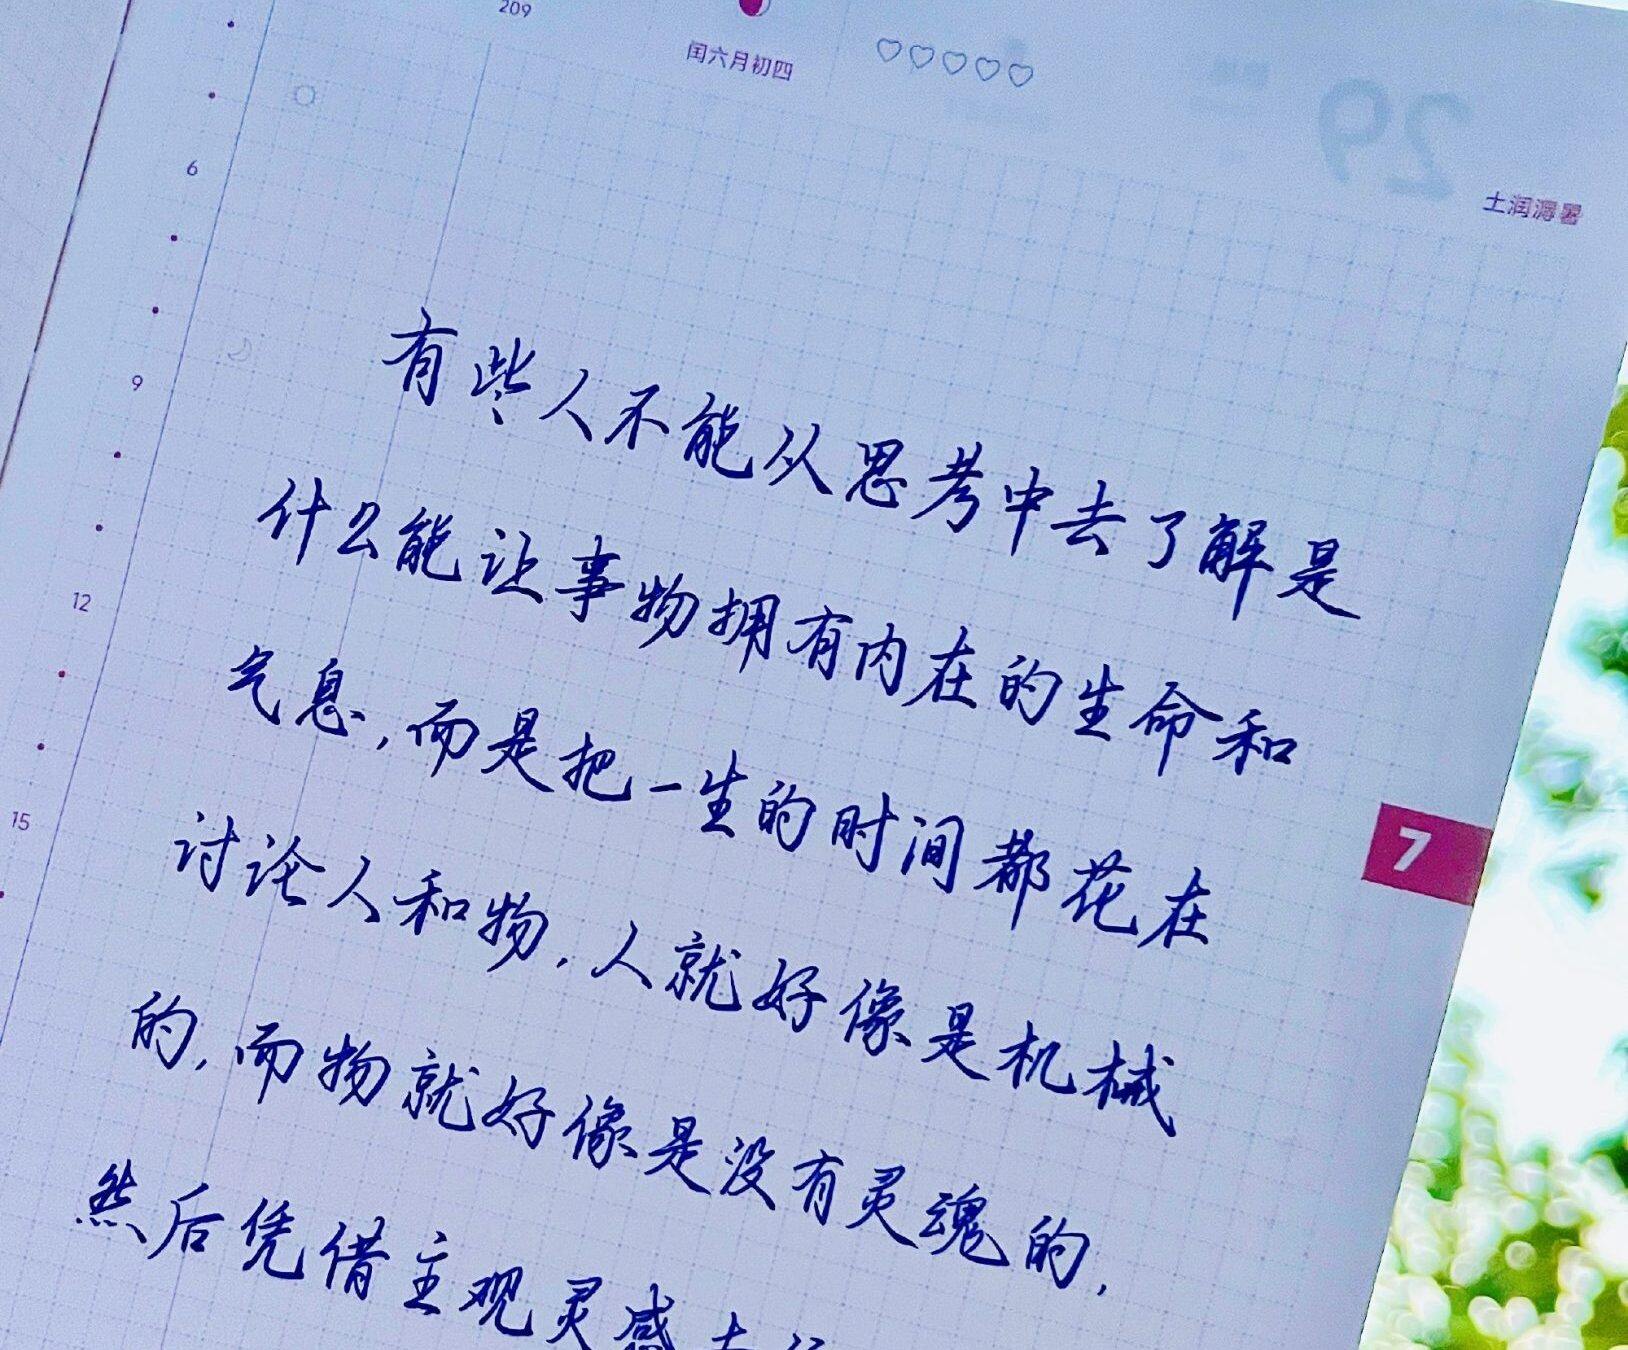 209
闰六月初四
29
土润溽暑
6
9
12
15
7
有些人不能从思考中去了解是
什么能让事物拥有内在的生命和
气息,而是把一生的时间都花在
讨论人和物,人就好像是机械
的,而物就好像是没有灵魂的,
然后凭借主观灵感去